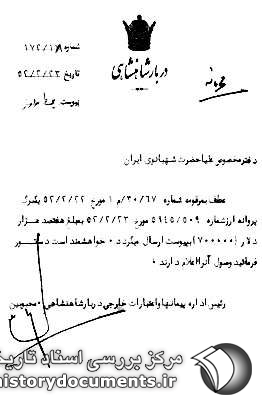 دربار شاهنشاهی
شماره ۱۷۲/۱م
تاریخ ۵۲/۲/۲۳
پیوست
محرمانه
دفتر مخصوص علیاحضرت شهبانوی ایران
عطف بمرقومه شماره ۳۰/۶۷/م ۱ مورخ ۵۲/۲/۲۲ یکبرگ
پروانه ارز شماره ۵۹۴۵/۵۰۹ مورخ ۵۲/۲/۲۳ بمبلغ هفتصد هزار
دلار (۷۰۰۰۰۰) بپیوست ارسال میگردد ۰ خواهشمند است دستور
فرمائید وصول آنرا اعلام دارند ۰
رئیس اداره پیمانها و اعتبارات خارجی دربار شاهنشاهی ۰
مرکز بررسی اسناد تاریخ
historydocuments.ir